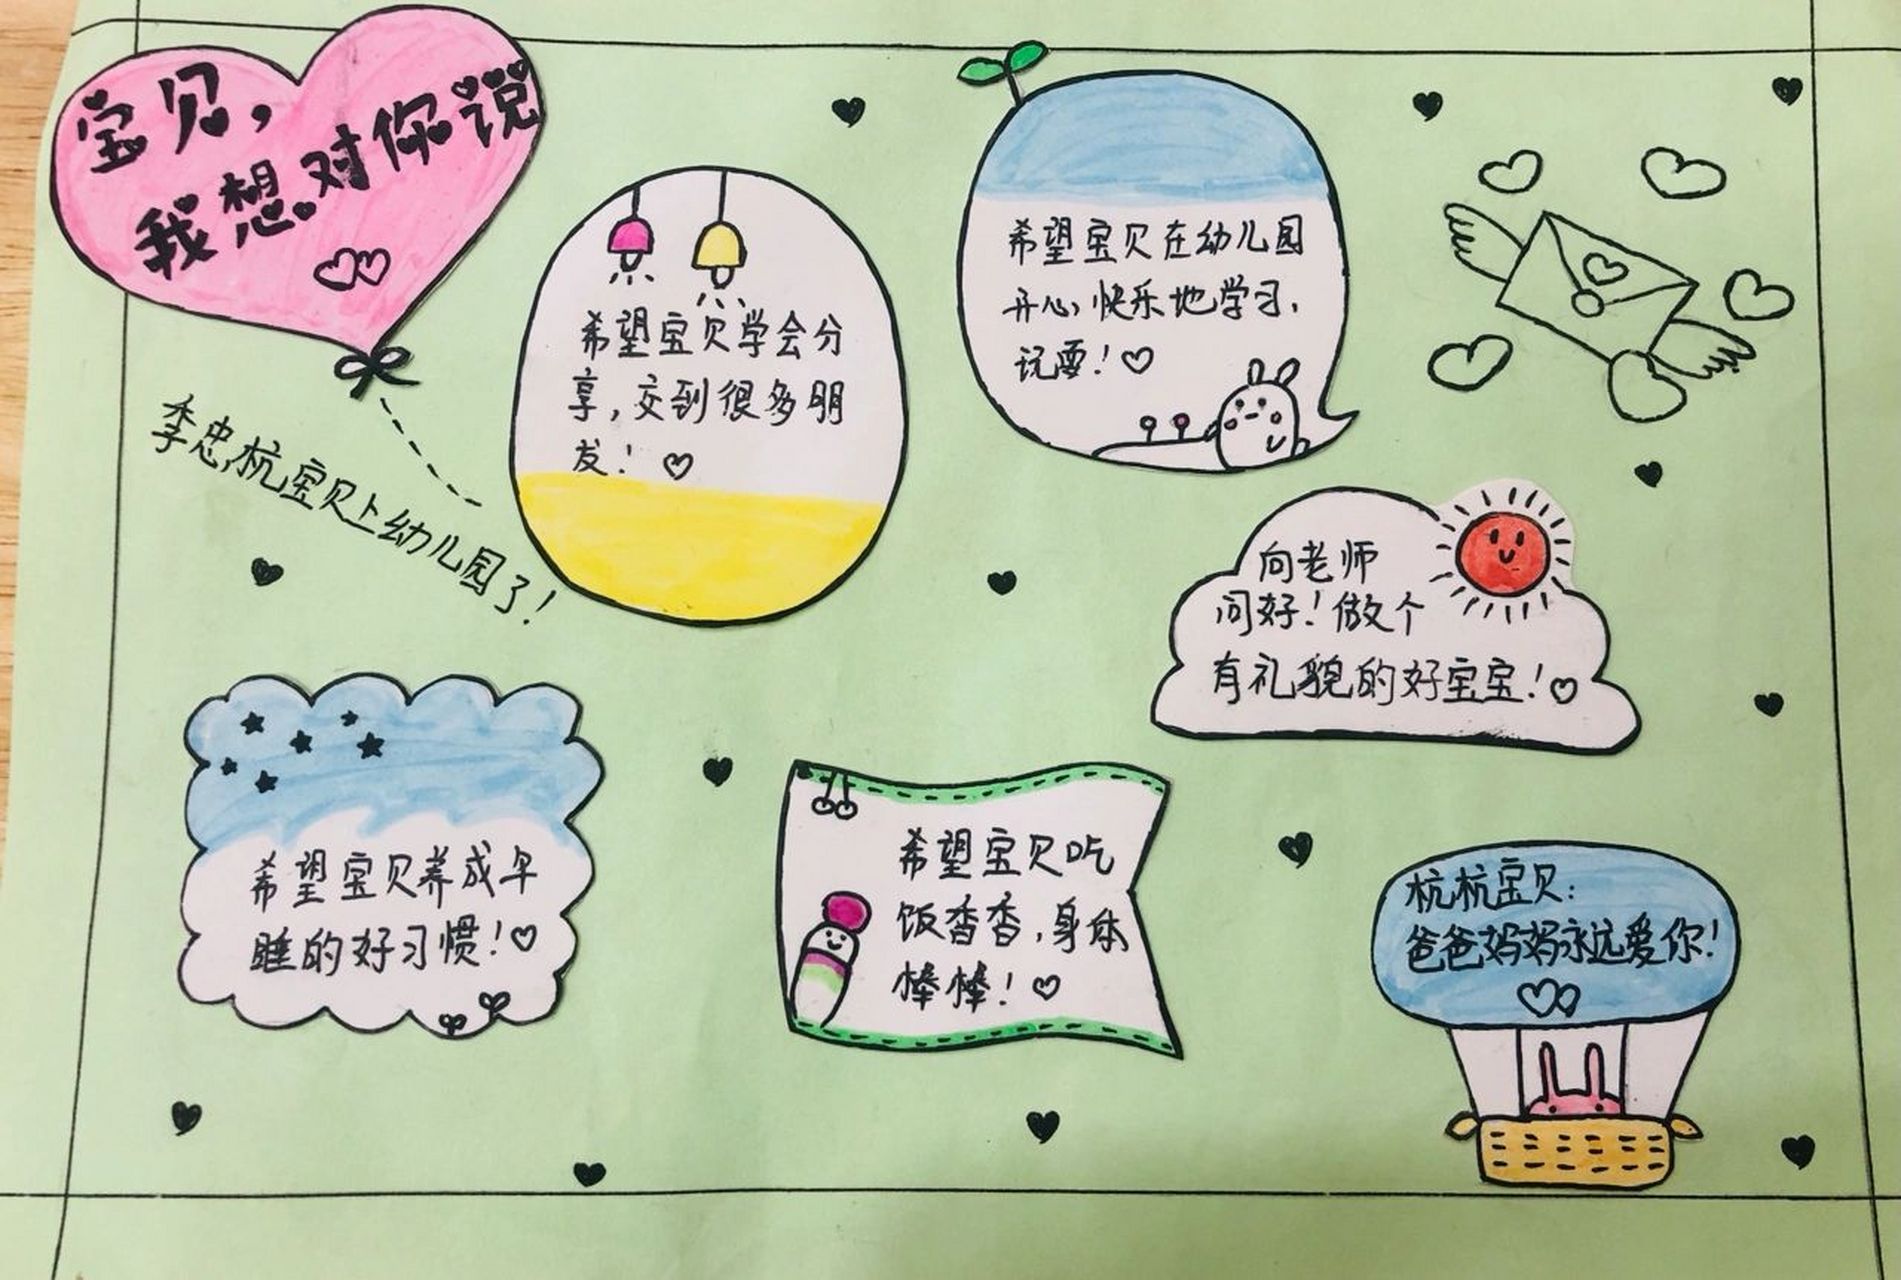 宝贝，
我想对你说
李忠杭宝贝上幼儿园了！
希望宝贝学会分
享，交到很多朋
友！
希望宝贝在幼儿园
开心，快乐地学习，
玩耍！
向老师
问好！做个
有礼貌的好宝宝！
希望宝贝养成早
睡的好习惯！
希望宝贝吃
饭香香，身体
棒棒！
杭杭宝贝：
爸爸妈妈永远爱你！